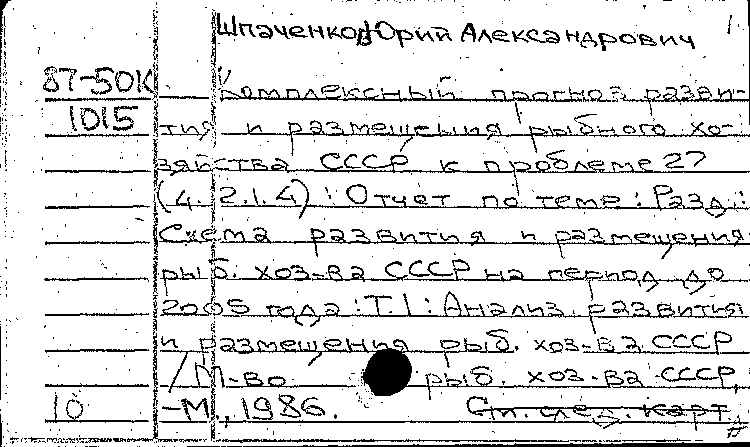 Шпаченков Юрий Александрович
87-50К Комплексный прогноз разви-
1015 тия и размещения рыбного хо-
зяйства СССР к проблеме 27
(4.2.1.4) : Отчет по теме : Разд.:
Схема развития и размещения
рыб. хоз-ва СССР на период до
2005 года : Т.1 : Анализ развития
и размещения рыб. хоз-ва СССР
/ М-во рыб. хоз-ва СССР,
10 -М., 1986. См. след. карт.